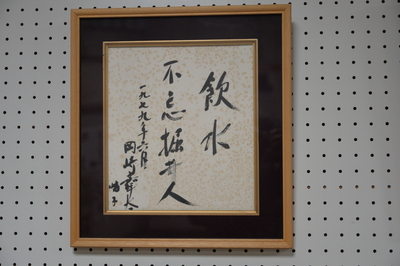 飲水
不忘掘井人
一九七九年六月
岡崎嘉平太
時子